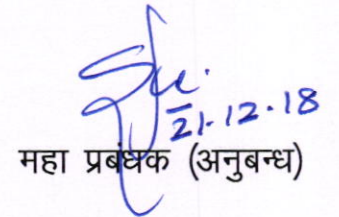 21.12.18
महा प्रबंधक (अनुबन्ध)